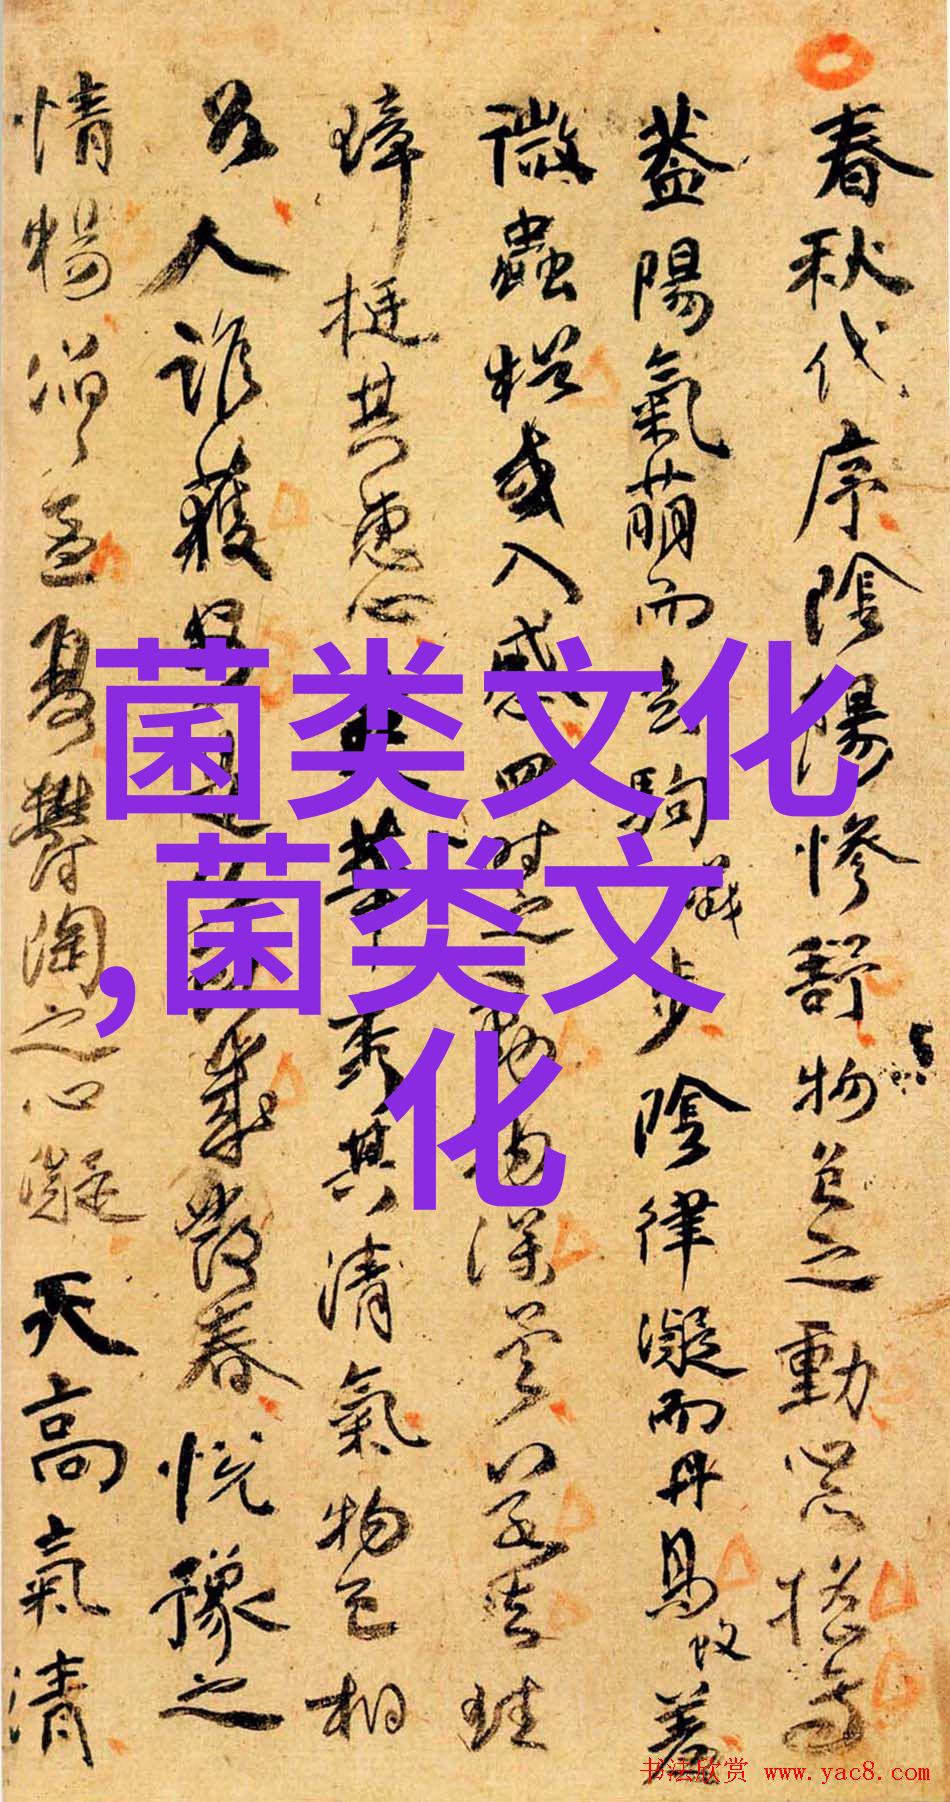 春秋代序陰陽慘舒物色之動心亦搖焉
蓋陽氣萌而玄駒步陰律凝而丹鳥蚊羞
微蟲猶或入感四時之動物深矣若夫珪
璋挺其惠心英華秀其清氣物色相
召人誰獲歲發春悅豫之
情暢滔々孟夏鬱陶之心凝天高氣清
菌类文化
,菌类文
化
书法欣赏 www.yac8.com